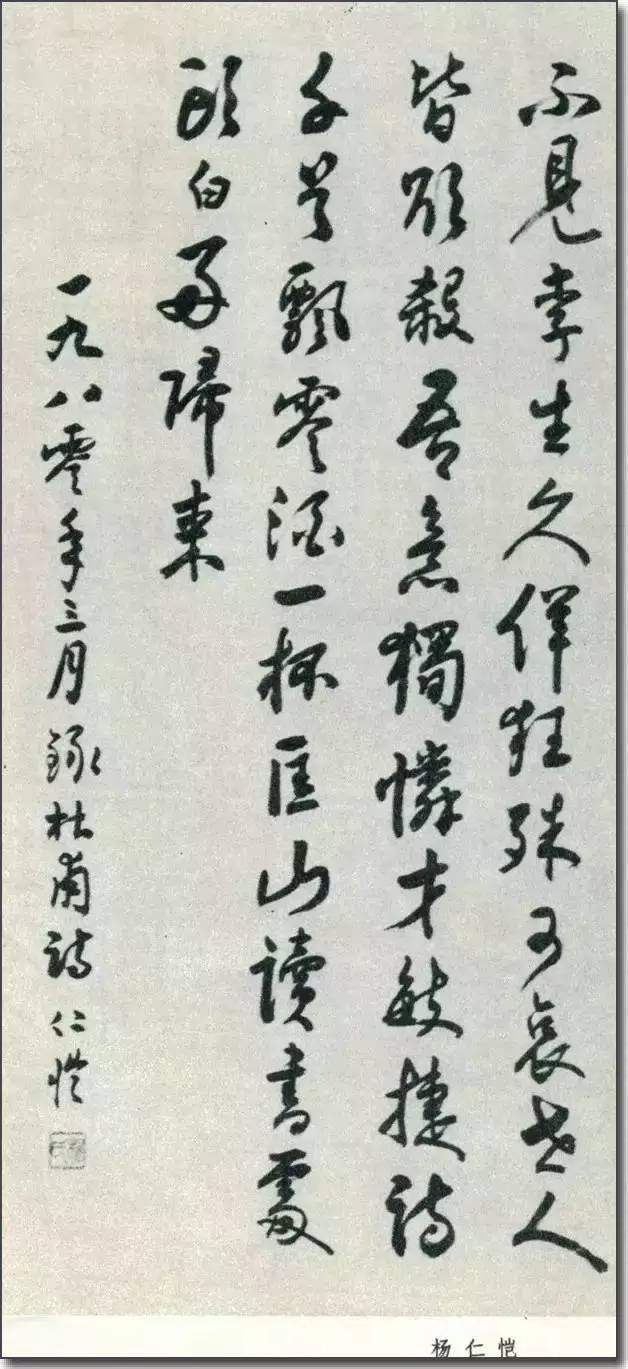 不見李生久佯狂殊可哀世人
皆欲殺吾意獨憐才敏捷詩
千首飄零酒一杯匡山讀書處
頭白好歸來
一九八零年三月錄杜甫詩 仁愷
杨仁恺